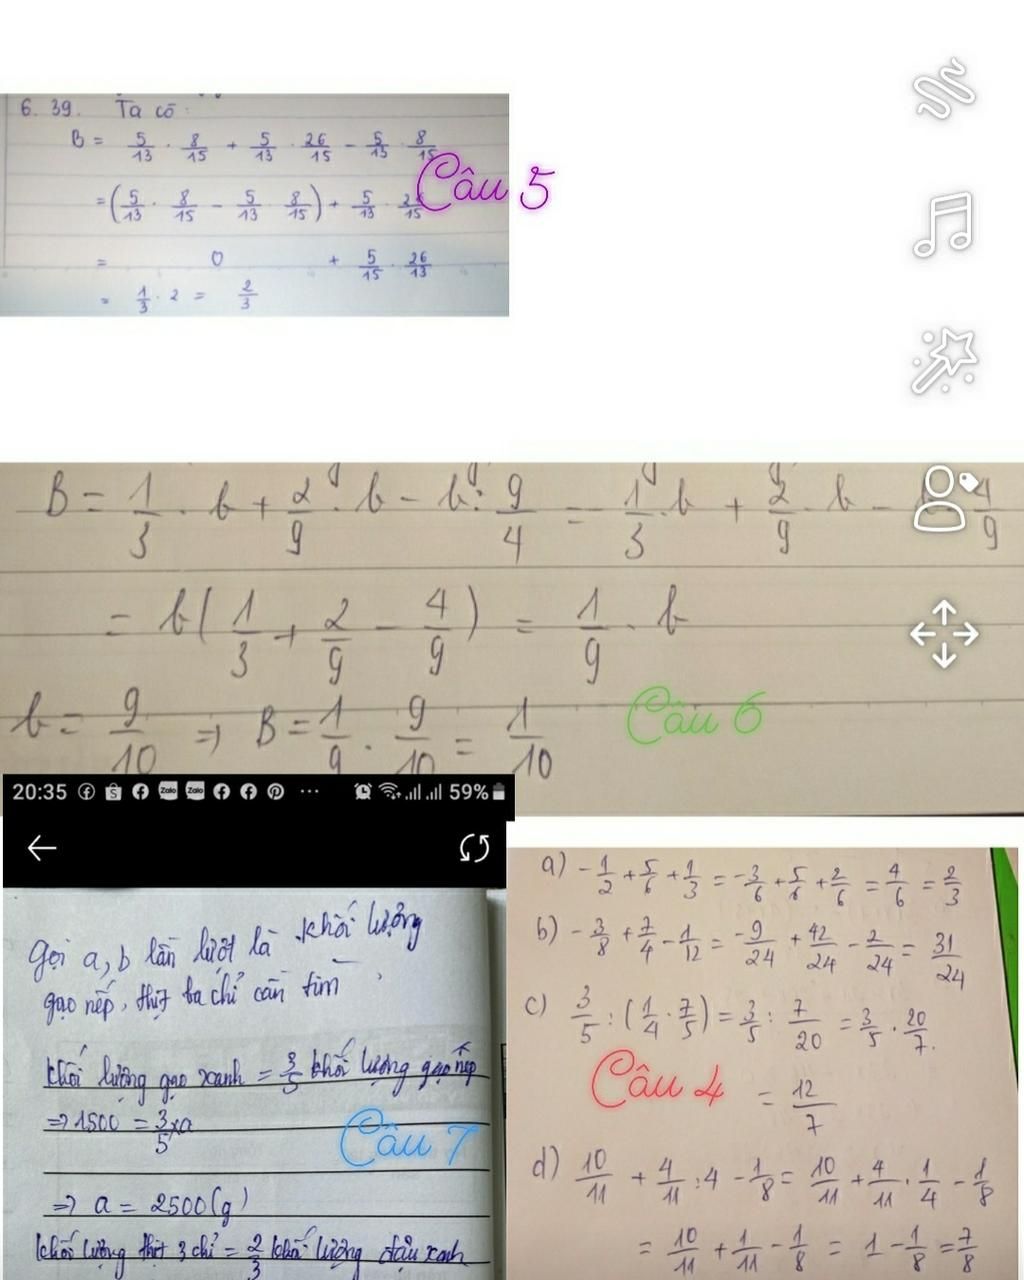 6. 39. Ta có:
B = 5/13 . 8/15 + 5/13 . 26/15 - 5/13 . 8/15
= (5/13 . 8/15 - 5/13 . 8/15) + 5/13 .
Câu 5
= 0 + 5/15 . 26/13
= 1/3 . 2 = 2/3
B = 1/3 . b + 2/9 . b - b : 9/4 = 1/3 . b + 2/9 . b - 4/9
= b(1/3 + 2/9 - 4/9) = 1/9 . b
b = 9/10 => B = 1/9 . 9/10 = 1/10
Câu 6
20:35 Zalo Zalo ... 59%
Gọi a, b lần lượt là khối lượng
gạo nếp, thịt ba chỉ cần tìm
khối lượng gạo xanh = 3/5 khối lượng gạo nếp
=> 1500 = 3/5 x a
Câu 7
=> a = 2500(g)
khối lượng thịt 3 chỉ = 2/3 khối lượng đậu xanh
a) -1/2 + 5/6 + 1/3 = -3/6 + 5/6 + 2/6 = 4/6 = 2/3
b) -3/8 + 7/4 - 1/12 = -9/24 + 42/24 - 2/24 = 31/24
c) 3/5 : (1/4 . 7/5) = 3/5 : 7/20 = 3/5 . 20/7.
Câu 4
= 12/7
d) 10/11 + 4/11 : 4 - 1/8 = 10/11 + 4/11 . 1/4 - 1/8
= 10/11 + 1/11 - 1/8 = 1 - 1/8 = 7/8